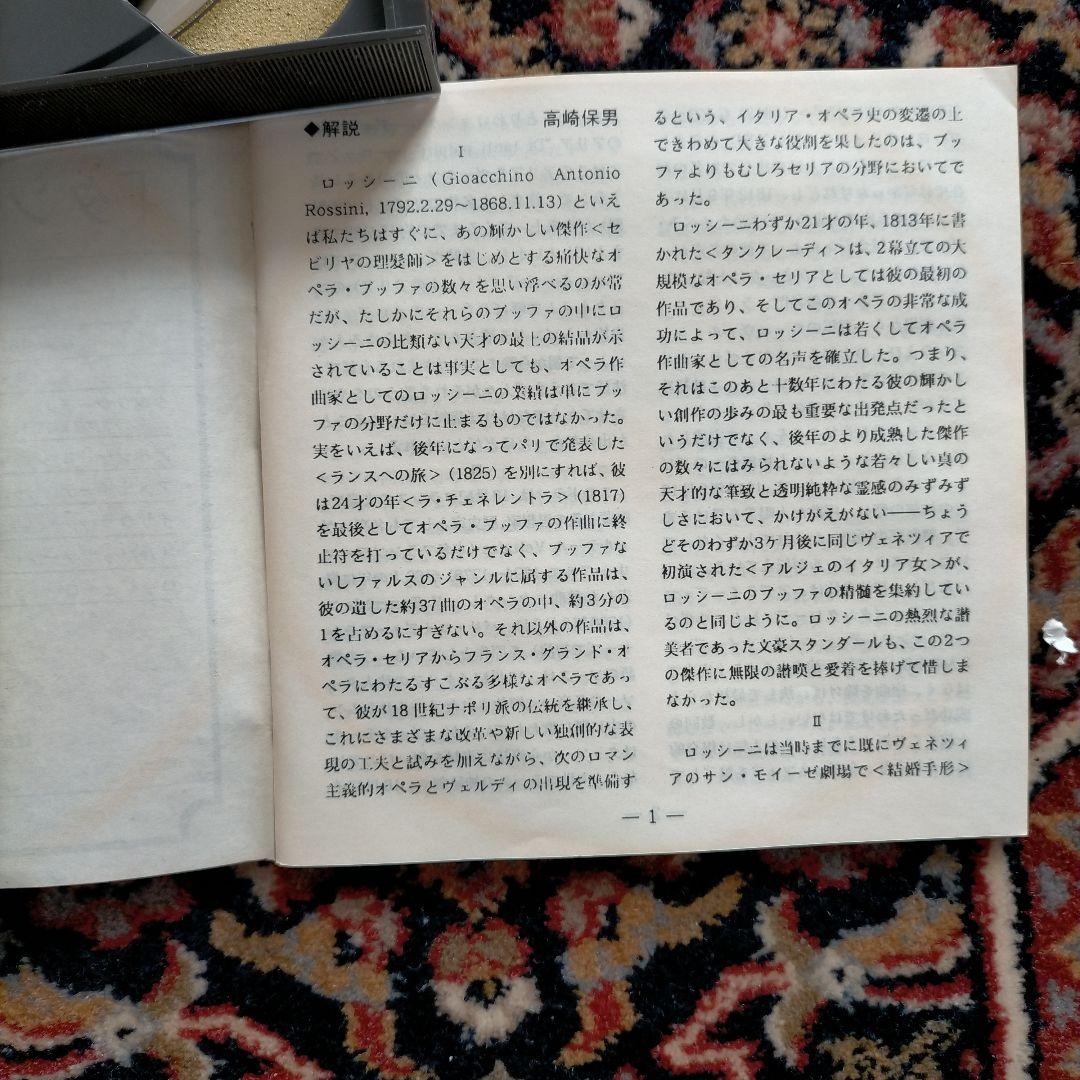 ◆解説 高崎保男
I
ロッシーニ(Gioacchino Antonio
Rossini, 1792.2.29〜1868.11.13)といえ
ば私たちはすぐに、あの輝かしい傑作<セ
ビリヤの理髪師>をはじめとする痛快なオ
ペラ・ブッファの数々を思い浮べるのが常
だが、たしかにそれらのブッファの中にロ
ッシーニの比類ない天才の最上の結晶が示
されていることは事実としても、オペラ作
曲家としてのロッシーニの業績は単にブッ
ファの分野だけに止まるものではなかった。
実をいえば、後年になってパリで発表した
<ランスへの旅>(1825)を別にすれば、彼
は24才の年<ラ・チェネレントラ>(1817)
を最後としてオペラ・ブッファの作曲に終
止符を打っているだけでなく、ブッファな
いしファルスのジャンルに属する作品は、
彼の遺した約37曲のオペラの中、約3分の
1を占めるにすぎない。それ以外の作品は、
オペラ・セリアからフランス・グランド・オ
ペラにわたるすこぶる多様なオペラであっ
て、彼が18世紀ナポリ派の伝統を継承し、
これにさまざまな改革や新しい独創的な表
現の工夫と試みを加えながら、次のロマン
主義的オペラとヴェルディの出現を準備す
るという、イタリア・オペラ史の変遷の上
できわめて大きな役割を果したのは、ブッ
ファよりもむしろセリアの分野においてで
あった。
ロッシーニわずか21才の年、1813年に書
かれた<タンクレーディ>は、2幕立ての大
規模なオペラ・セリアとしては彼の最初の
作品であり、そしてこのオペラの非常な成
功によって、ロッシーニは若くしてオペラ
作曲家としての名声を確立した。つまり、
それはこのあと十数年にわたる彼の輝かし
い創作の歩みの最も重要な出発点だったと
いうだけでなく、後年のより成熟した傑作
の数々にはみられないような若々しい真の
天才的な筆致と透明純粋な霊感のみずみず
しさにおいて、かけがえがない——ちょう
どそのわずか3ケ月後に同じヴェネツィアで
初演された<アルジェのイタリア女>が、
ロッシーニのブッファの精髄を集約してい
るのと同じように。ロッシーニの熱烈な讃
美者であった文豪スタンダールも、この2つ
の傑作に無限の讃嘆と愛着を捧げて惜しま
なかった。
II
ロッシーニは当時までに既にヴェネツィ
アのサン・モイーゼ劇場で<結婚手形>
— 1 —